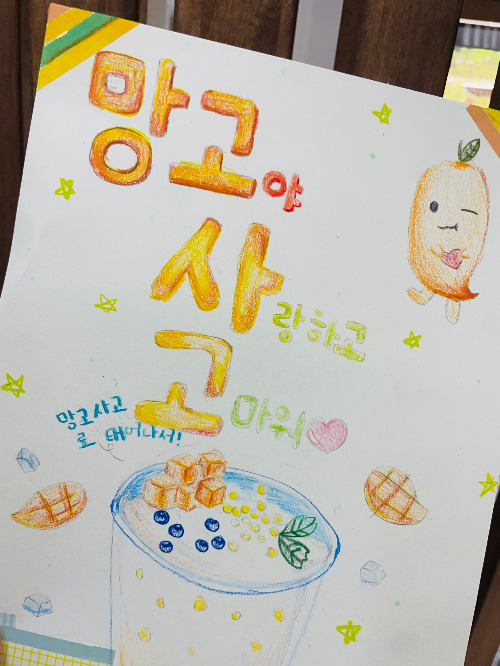 망고야
사랑하고
고마워
망고사고
로 태어나서!